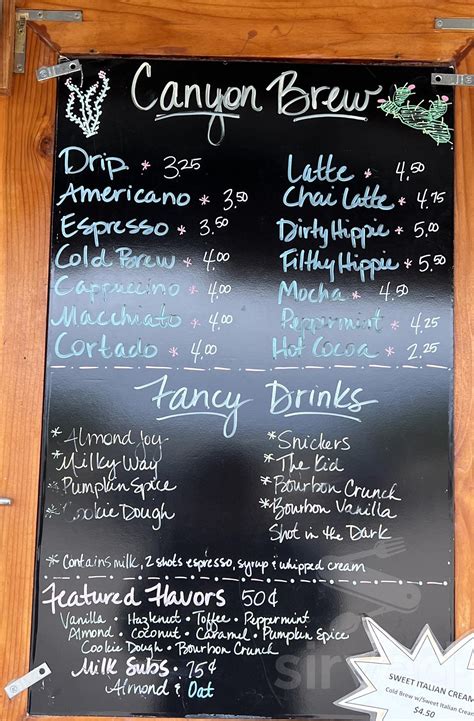 Canyon Brew
Drip * 3.25
Americano * 3.50
Espresso * 3.50
Cold Brew * 4.00
Cappuccino * 4.00
Macchiato * 4.00
Cortado * 4.00
Latte * 4.50
Chai Latte * 4.75
Dirty Hippie * 5.00
Filthy Hippie * 5.50
Mocha * 4.50
Peppermint * 4.25
Hot Cocoa * 2.25
Fancy Drinks
*Almond Joy
*Milky Way
*Pumpkin Spice
Cookie Dough
*Snickers
*The Kid
*Bourbon Crunch
*Bourbon Vanilla
Shot in the Dark
*Contains milk, 2 shots espresso, syrup & whipped cream
Featured Flavors 50¢
Vanilla • Hazlenut • Toffee • Peppermint
Almond • Coconut • Caramel • Pumpkin Spice
Cookie Dough • Bourbon Crunch
Milk Subs • 75¢
Almond & Oat
SWEET ITALIAN CREAM
Cold Brew w/Sweet Italian Cream
$4.50